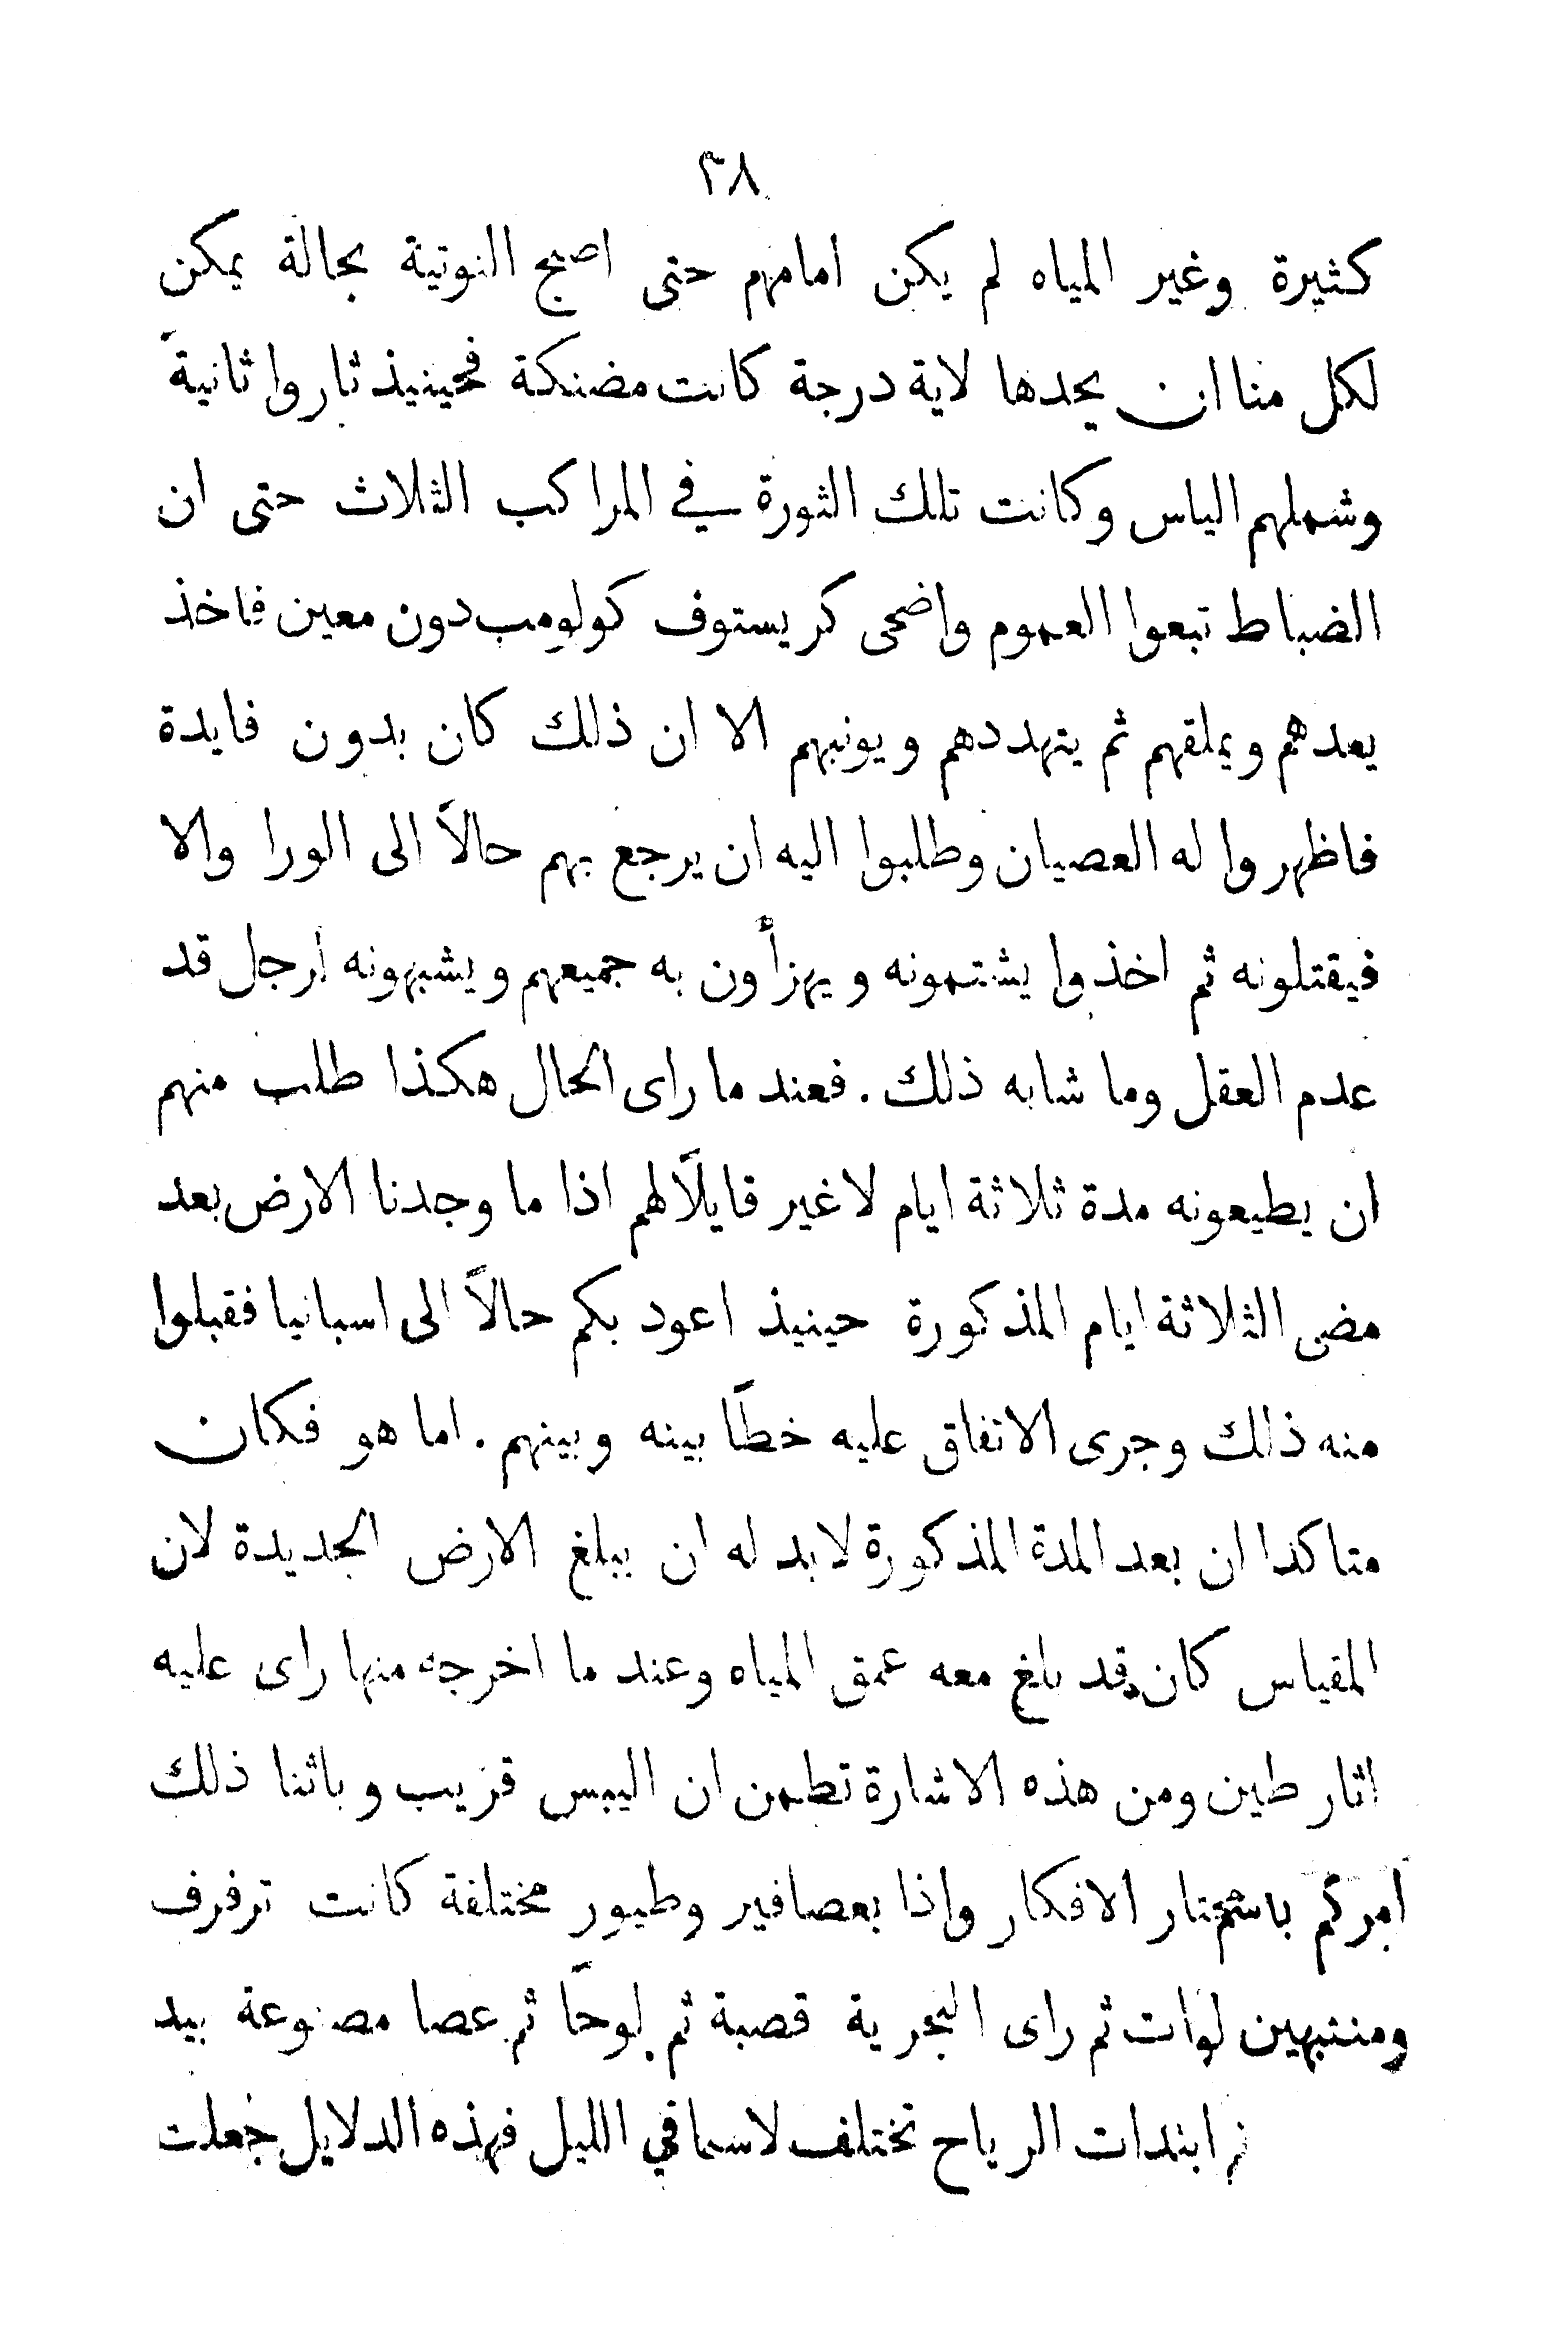 ٣٨
كثيرة وغير المياه لم يكن امامهم حتى اصبح النوتية بحالة يمكن
لكل منا ان يحدها لاية درجة كانت مضنكة فحينيذ ثاروا ثانيةً
وشملهم الياس وكانت تلك الثورة في المراكب الثلاث حتى ان
الضباط تبعوا العموم واضحى كريستوف كولومب دون معين فاخذ
يعدهم ويملقهم ثم يتهددهم ويونبهم الا ان ذلك كان بدون فايدة
فاظهروا له العصيان وطلبوا اليه ان يرجع بهم حالاً الى الورا والا
فيقتلونه ثم اخذوا يشتمونه ويهزأون به جميعهم ويشبهونه لرجل قد
عدم العقل وما شابه ذلك. فعند ما راى الحال هكذا طلب منهم
ان يطيعونه مدة ثلاثة ايام لا غير قايلاً لهم اذا ما وجدنا الارض بعد
مضى الثلاثة ايام المذكورة حينيذ اعود بكم حالاً الى اسبانيا فقبلوا
منه ذلك وجرى الاتفاق عليه خطًا بينه وبينهم. اما هو فكان
متاكدا ان بعد المدة المذكورة لابد له ان يبلغ الارض الجديدة لان
المقياس كان قد بلغ معه عمق المياه وعند ما اخرجه منها راى عليه
اثار طين ومن هذه الاشارة تطمن ان اليبس قريب وباثنا ذلك
الافكار واذا بعصافير وطيور مختلفة كانت ترفرف
ومنتبهين ثم راى البحرية قصبة ثم لوحًا ثم عصا مصنوعة بيد
ابتدات الرياح تختلف لاسيما في الليل فهذه الدلايل جعلت